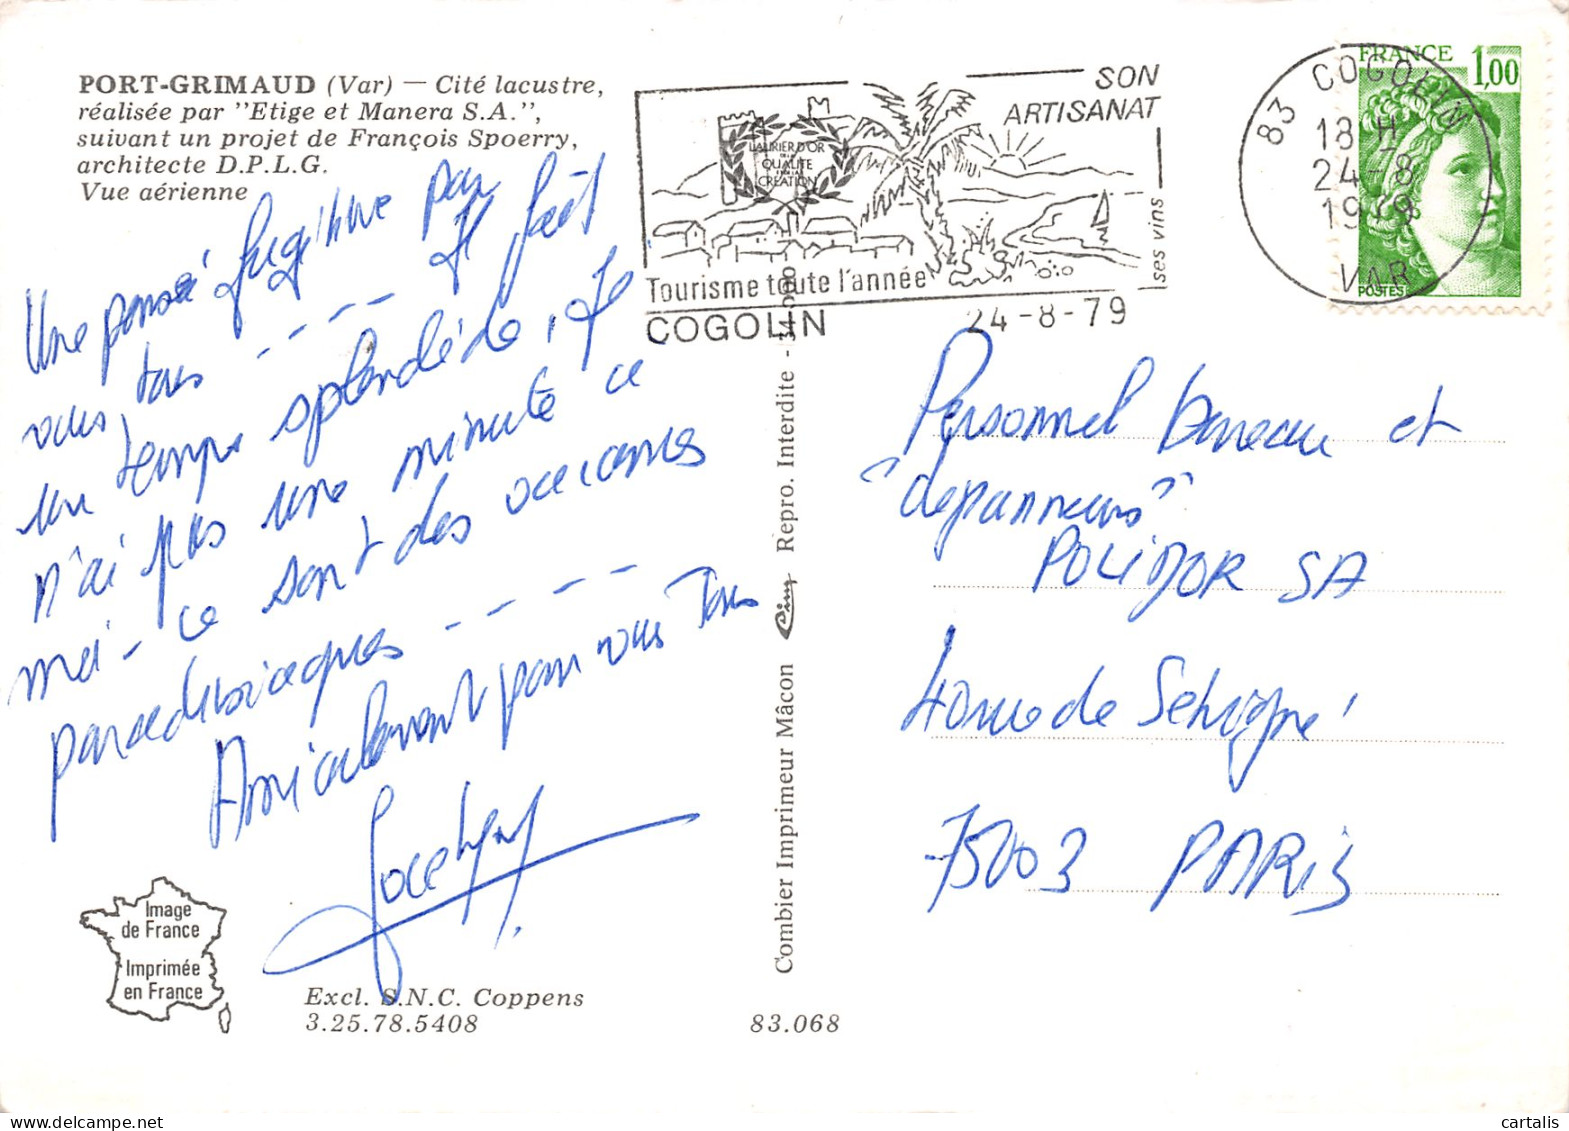 PORT-GRIMAUD (Var) — Cité lacustre,
réalisée par "Etige et Manera S.A.",
suivant un projet de François Spoerry,
architecte D.P.L.G.
Vue aérienne
Une pensée fugitive pour
vous tous - - - - Il fait
un temps splendide, Je
n'ai pas une minute à
moi - ce sont des vacances
- - - -
Amicalement pour vous Tous
Jocelyne
Image
de France
Imprimée
en France
Excl. S.N.C. Coppens
3.25.78.5408
83.068
Combier Imprimeur Mâcon Cim Repro. Interdite -
SON
ARTISANAT
LAURIER D'OR
DE LA
QUALITE
CREATION
ses vins
Tourisme toute l'année
COGOLIN
24-8-79
83 COGOLIN
18 H
24-8
1979
VAR
FRANCE 1,00
POSTES
Personnel bureau et
"dépanneurs"
POLIDOR SA
4 rue de Sévigné
75003 PARIS
cartalis
cartalis.com